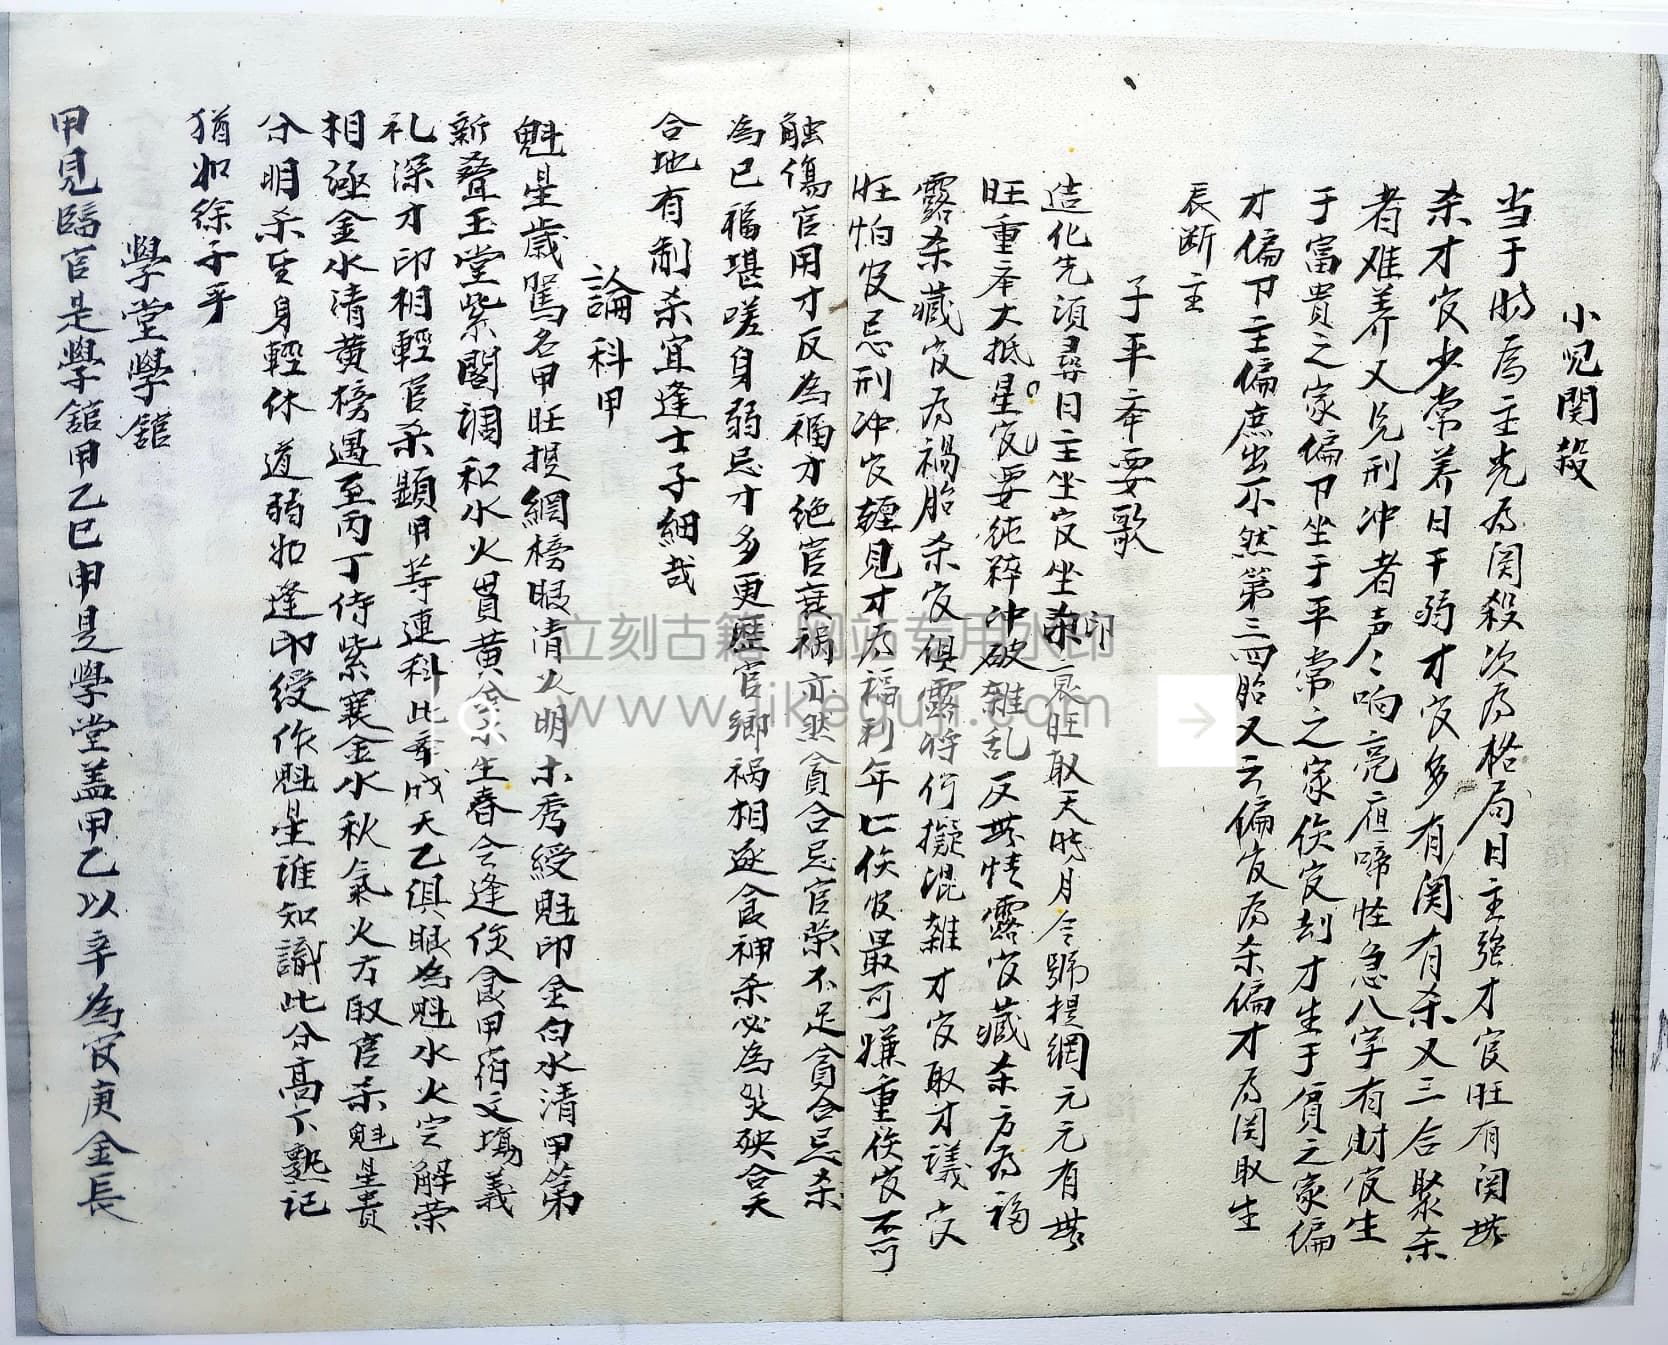 小児関殺
当于时爲主先为関殺次为格局日主強才官旺有関無
杀才官少常养日干弱才官多有関有杀又三合聚杀
者难养又見刑冲者声々响亮症啼怪急八字有財官生
于富貴之家偏卩坐于平常之家俟官刦才生于貧之家偏
才偏卩主偏庶出不然第三四胎又云偏官为杀偏才为関取生
辰断主
子平夲要歌
造化先須尋日主坐官坐杀印衰旺取天时月令號提綱元元有無
旺重夲大抵星官要纯粹冲破雜乱反無情露官藏杀方为福
露杀藏官为禍胎杀官俱露将何擬混雜才官取才議官
旺怕官忌刑冲官輕見才为福利年上傷官最可嫌重傷官不可
触傷官用才反為福才绝官衰祸亦然貪合忌官荣不足貪合忌杀
為已福堪嗟身弱忌才多更歷官鄉祸相逐食神杀必為災殃合天
合地有制杀宜逢士子細哉
論科甲
魁星歳駕名甲旺提綱榜眼清火明木秀綬魁印金白水清甲第
新叠玉堂紫閣調和水火貫黄金木生春令逢傷食甲荷文塲義
礼深才印相輕官杀顕甲等連科此夲成天乙俱眼為魁水火定解荣
相逐金水清黄榜遇至丙丁侍紫襄金水秋氣火方取官杀魁星贵
分明杀生身輕休道弱如逢印綬作魁星誰知識此分高下熟记
猶如徐子平
學堂學舘
甲見臨官是學舘甲乙巳申是學堂盖甲乙以辛為官庚金長
立刻古籍 网站专用水印
www.likeguji.com